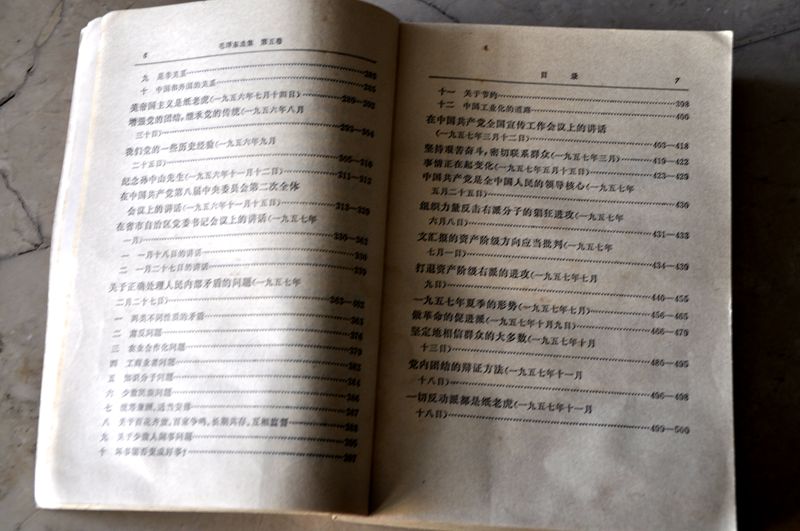 6
毛泽东选集　第五卷
九　是非关系
十　中国和外国的关系
美帝国主义是纸老虎(一九五六年七月十四日)
增强党的团结,继承党的传统(一九五六年八月
三十日)
我们党的一些历史经验(一九五六年九月
二十五日)
纪念孙中山先生(一九五六年十一月十二日)……311—312
在中国共产党第八届中央委员会第二次全体
会议上的讲话(一九五六年十一月十五日)……313—329
在省市自治区党委书记会议上的讲话(一九五七年
一月)……330—362
一　一月十八日的讲话……330
二　一月二十七日的讲话……339
关于正确处理人民内部矛盾的问题(一九五七年
二月二十七日)……363—402
一　两类不同性质的矛盾
二　肃反问题……376
三　农业合作化问题……379
四　工商业者问题
五　知识分子问题……384
六　少数民族问题
七　统筹兼顾,适当安排……387
八　关于百花齐放、百家争鸣,长期共存、互相监督……388
九　关于少数人闹事问题……395
十　坏事能否变成好事?……397
目　录
7
十一　关于节约……398
十二　中国工业化的道路……400
在中国共产党全国宣传工作会议上的讲话
(一九五七年三月十二日)……403—418
坚持艰苦奋斗,密切联系群众(一九五七年三月)……419—422
事情正在起变化(一九五七年五月十五日)……423—429
中国共产党是全中国人民的领导核心(一九五七年
五月二十五日)……430
组织力量反击右派分子的猖狂进攻(一九五七年
六月八日)……431—433
文汇报的资产阶级方向应当批判(一九五七年
七月一日)……434—439
打退资产阶级右派的进攻(一九五七年七月
九日)……440—455
一九五七年夏季的形势(一九五七年七月)……456—465
做革命的促进派(一九五七年十月九日)……466—479
坚定地相信群众的大多数(一九五七年十月
十三日)……480—495
党内团结的辩证方法(一九五七年十一月
十八日)……496—498
一切反动派都是纸老虎(一九五七年十一月
十八日)……499—500